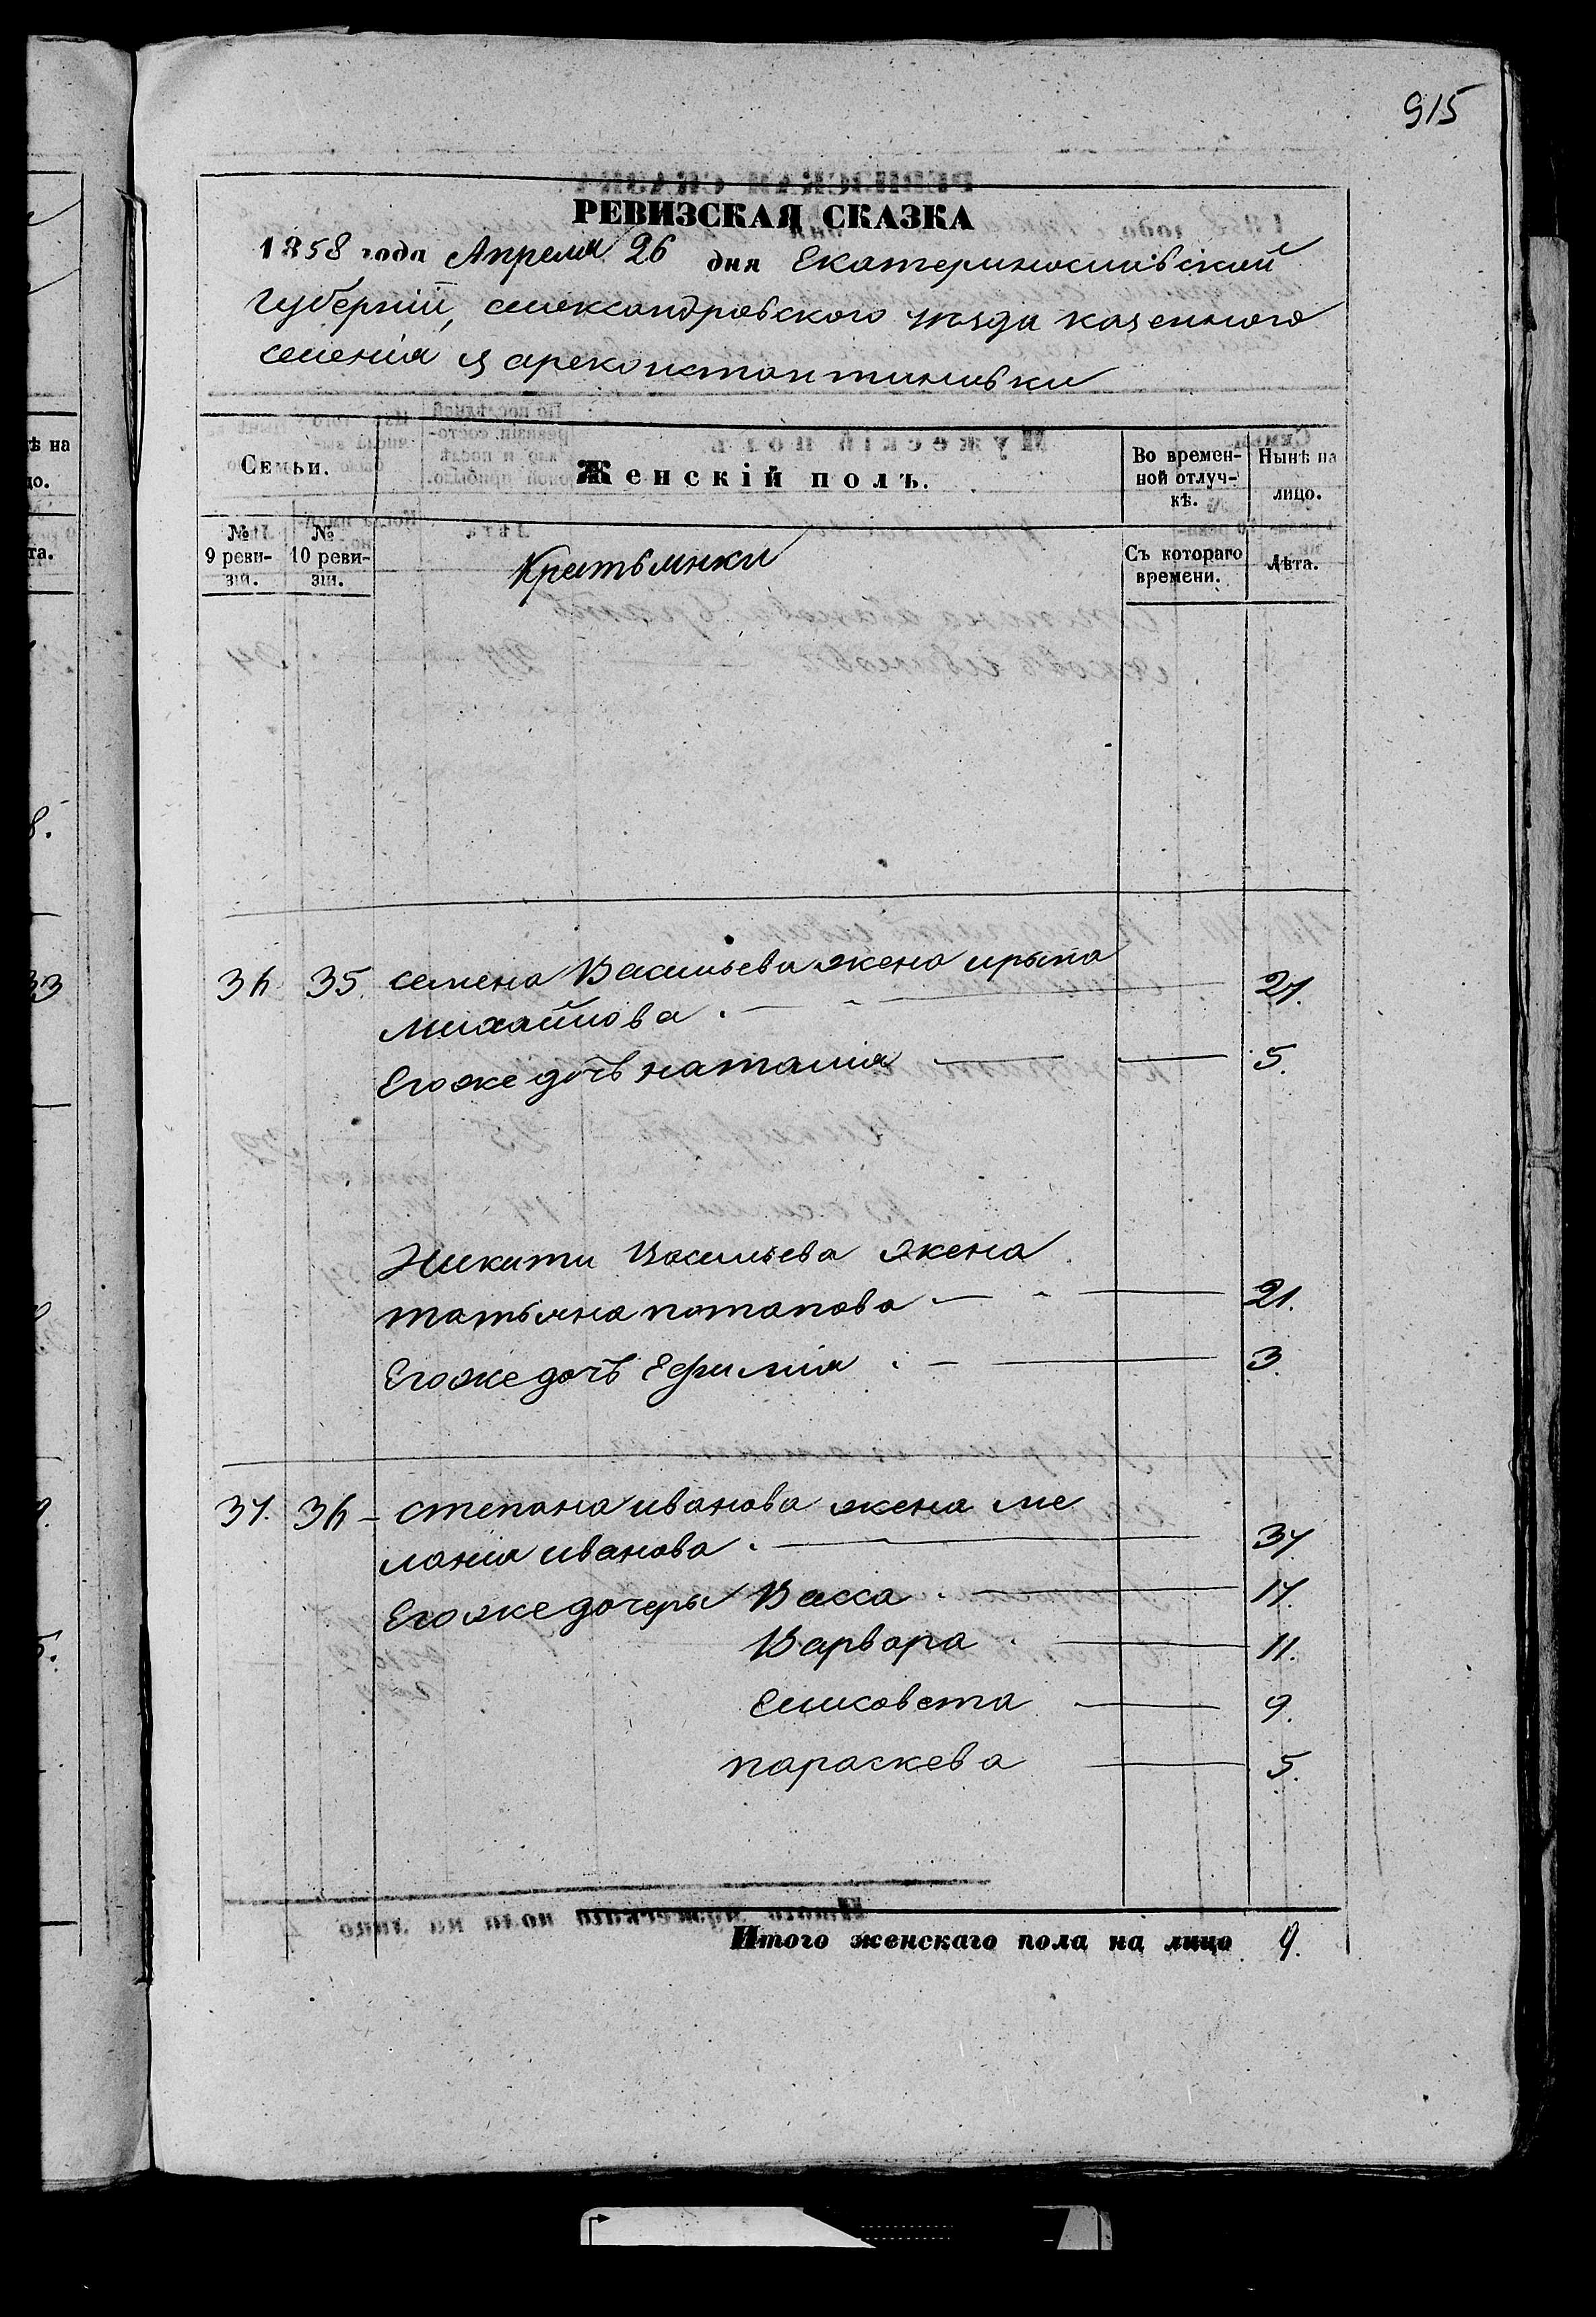 915
РЕВИЗСКАЯ СКАЗКА
1858 года Апреля 26 дня Екатериносливской
Губерніи, александровского уезда казенного
селенія Цареконстантиновки
Семьи.
Женскій полъ.
Во времен-
ной отлуч-
кѣ.
Нынѣ на
лицо.
№
9 реви-
зіи.
№
10 реви-
зіи.
Крестьянки
Съ котораго
времени.
Лѣта.
36 35. семена Васильева жена ирына
Михайлова 27.
Егоже дочь наталія 5.
Никиты Васильева жена
татьяна потапова 21.
Егоже дочь Ефимія 3.
37. 36 степана иванова жена ме
ланія иванова 37
Егоже дочеры Васса 17.
Варвара 11.
Елисовета 9.
параскева 5.
Итого женскаго пола на лицо 9.
ѣ на
до.
та.
8.
33